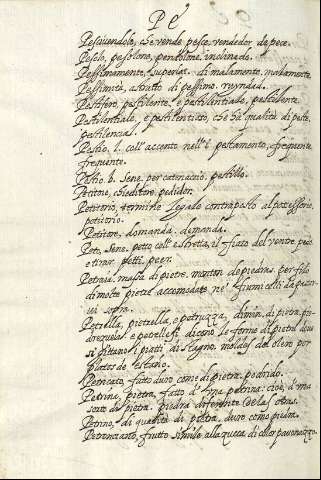 Pe
Pesciuendolo, che vende pesce, vendedor de pece.
Pesolo, pesolone, pendolone, inclinado.
Pessimamente, superlat. di malamente, malamente.
Pessimità, astratto di pessimo. ruyndad.
Pestifero, pestilente, e pestilentiale, pestilente.
Pestilentiale, e pestilentiato, che hà qualità di peste,
pestilencial.
Pestio, l. coll' accento nell' i. pestamento, frequente
frequente.
Pestio b. Sene, per catenaccio, pestillo.
Petitore, chieditore, pedidor.
Petitorio, termine legado contraposto al possessorio,
petitorio.
Petitore, domanda, demanda.
Peto, Sene, petto, coll' e stretta, il fiato del ventre
e tirar petti, peer.
Petraia, massa di pietre, monton de piedras. per filo
di molte pietre accomodate ne' fiumicelli da passar
ui sopra.
Petrella, pietrella, e petruzza, dimin. di pietra,
e petrelle si dicono le forme di pietra doue
si gittano i piatti di stagno, moldes del olero por
platos de estaño.
Petricato, fatto duro come di pietra,
Petrina, pietra, fatto d' una petrina: cioè, d' una
sorte de pietra. piedra diferente de las otras.
Petrino, di qualità di pietra, duro como piedra.
Petronzano, frutto simile alla zucca di color pauonazzo.